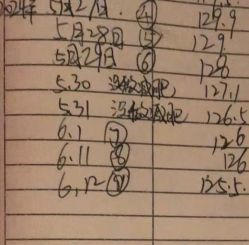 2024年 5月27日 ④ 129.9
5月28日 ⑤ 129.
5月29日 ⑥ 128
5.30 没 127.1
5.31 没 126.5
6.1 ⑦ 126.
6.11 ⑧ 126
6.12 ⑨ 125.5.